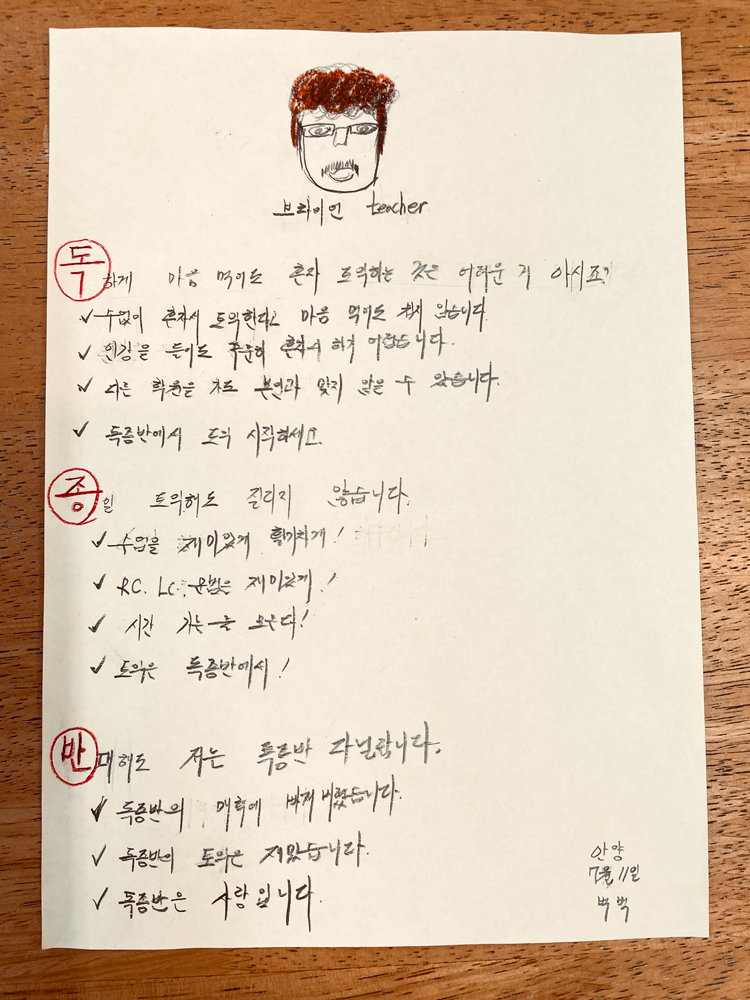 브라이언 teacher
독하게 마음 먹어도 혼자 토익하는 것은 어려운 거 아시죠?
✓ 수없이 혼자서 토익한다고 마음 먹어도 쉽지 않습니다
✓ 인강을 들어도 꾸준히 혼자서 하기 어렵습니다.
✓ 다른 학원을 가도 본인과 맞지 않을 수 있습니다.
✓ 독종반에서 토익 시작하세요.
종일 토익해도 질리지 않습니다.
✓ 수업을 재미있게 활기차게!
✓ R.C. L.C. 문법은 재미있게!
✓ 시간 가는 줄 모른다!
✓ 토익은 독종반에서!
반대해도 저는 독종반 다닐랍니다.
✓ 독종반의 매력에 빠져 버렸습니다.
✓ 독종반의 토익은 재밌습니다.
✓ 독종반은 사랑입니다.
안양
7월 11일